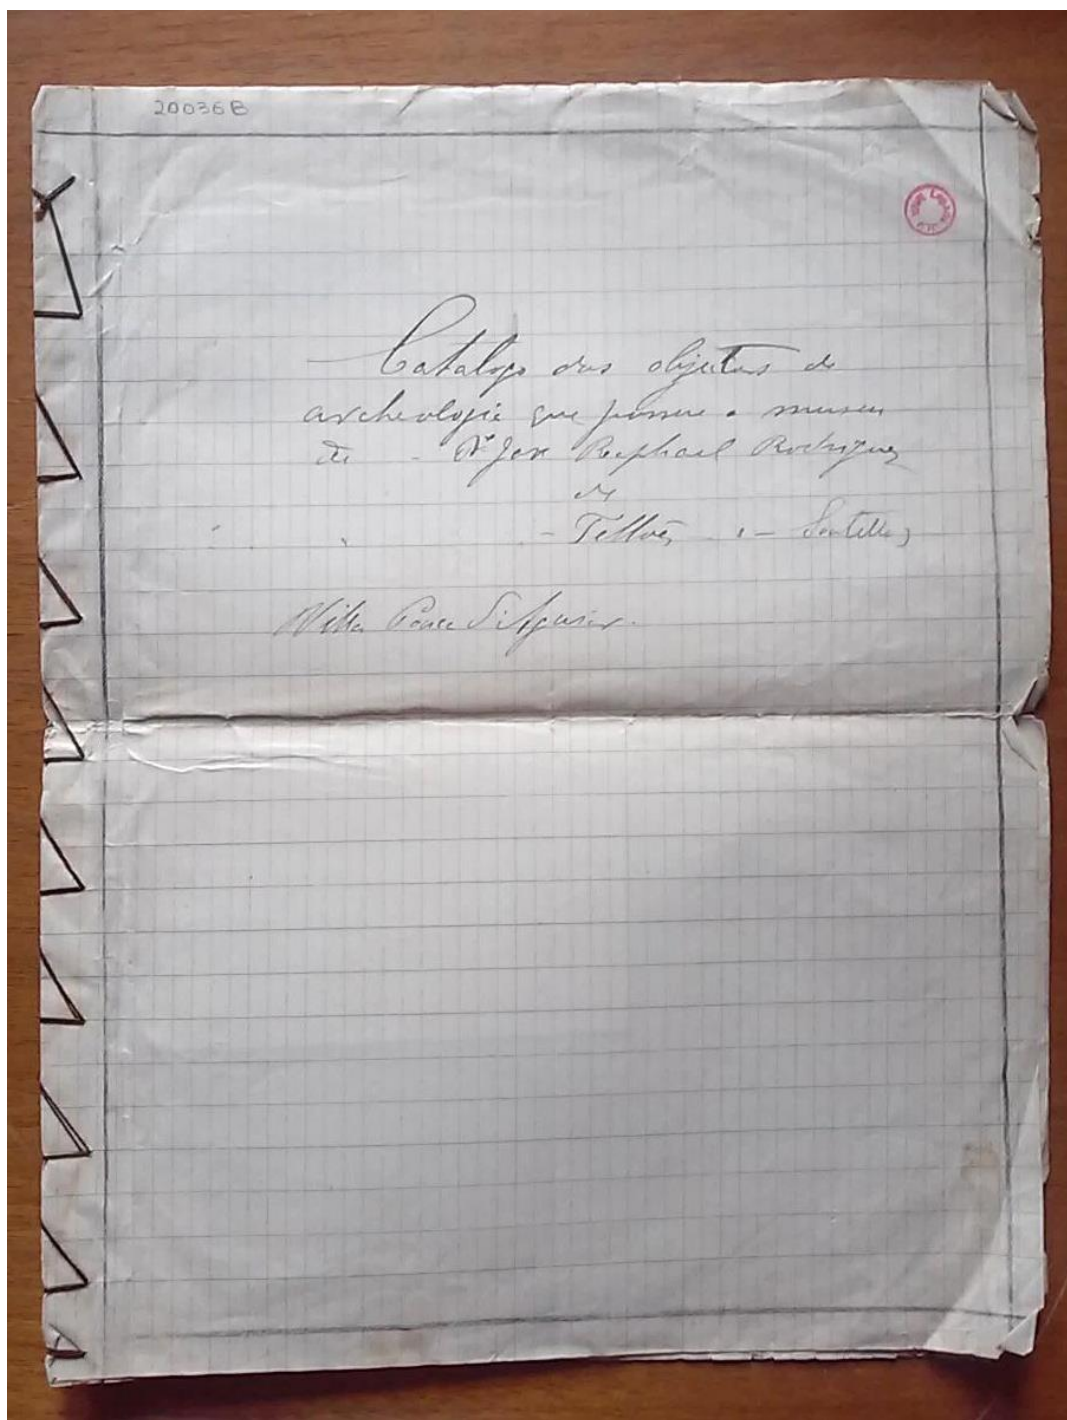 20036B
Catalogo dos objectos de
archeologia que possue o museu
de Jose Raphael Rodrigues
de
Tellões
Villa Pouca d'Aguiar.